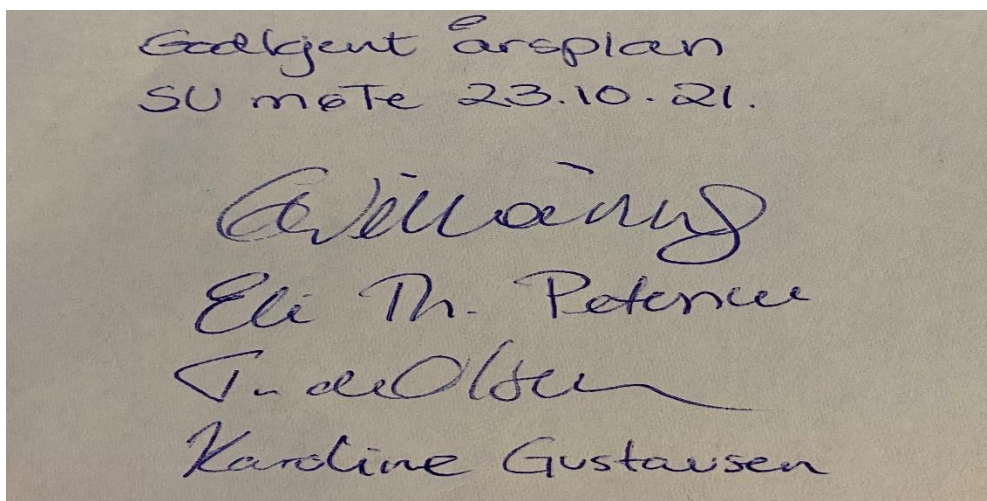 Godkjent årsplan
SU møTe 23.10.21.
Eli Th. Petersen
Olsen
Karoline Gustavsen